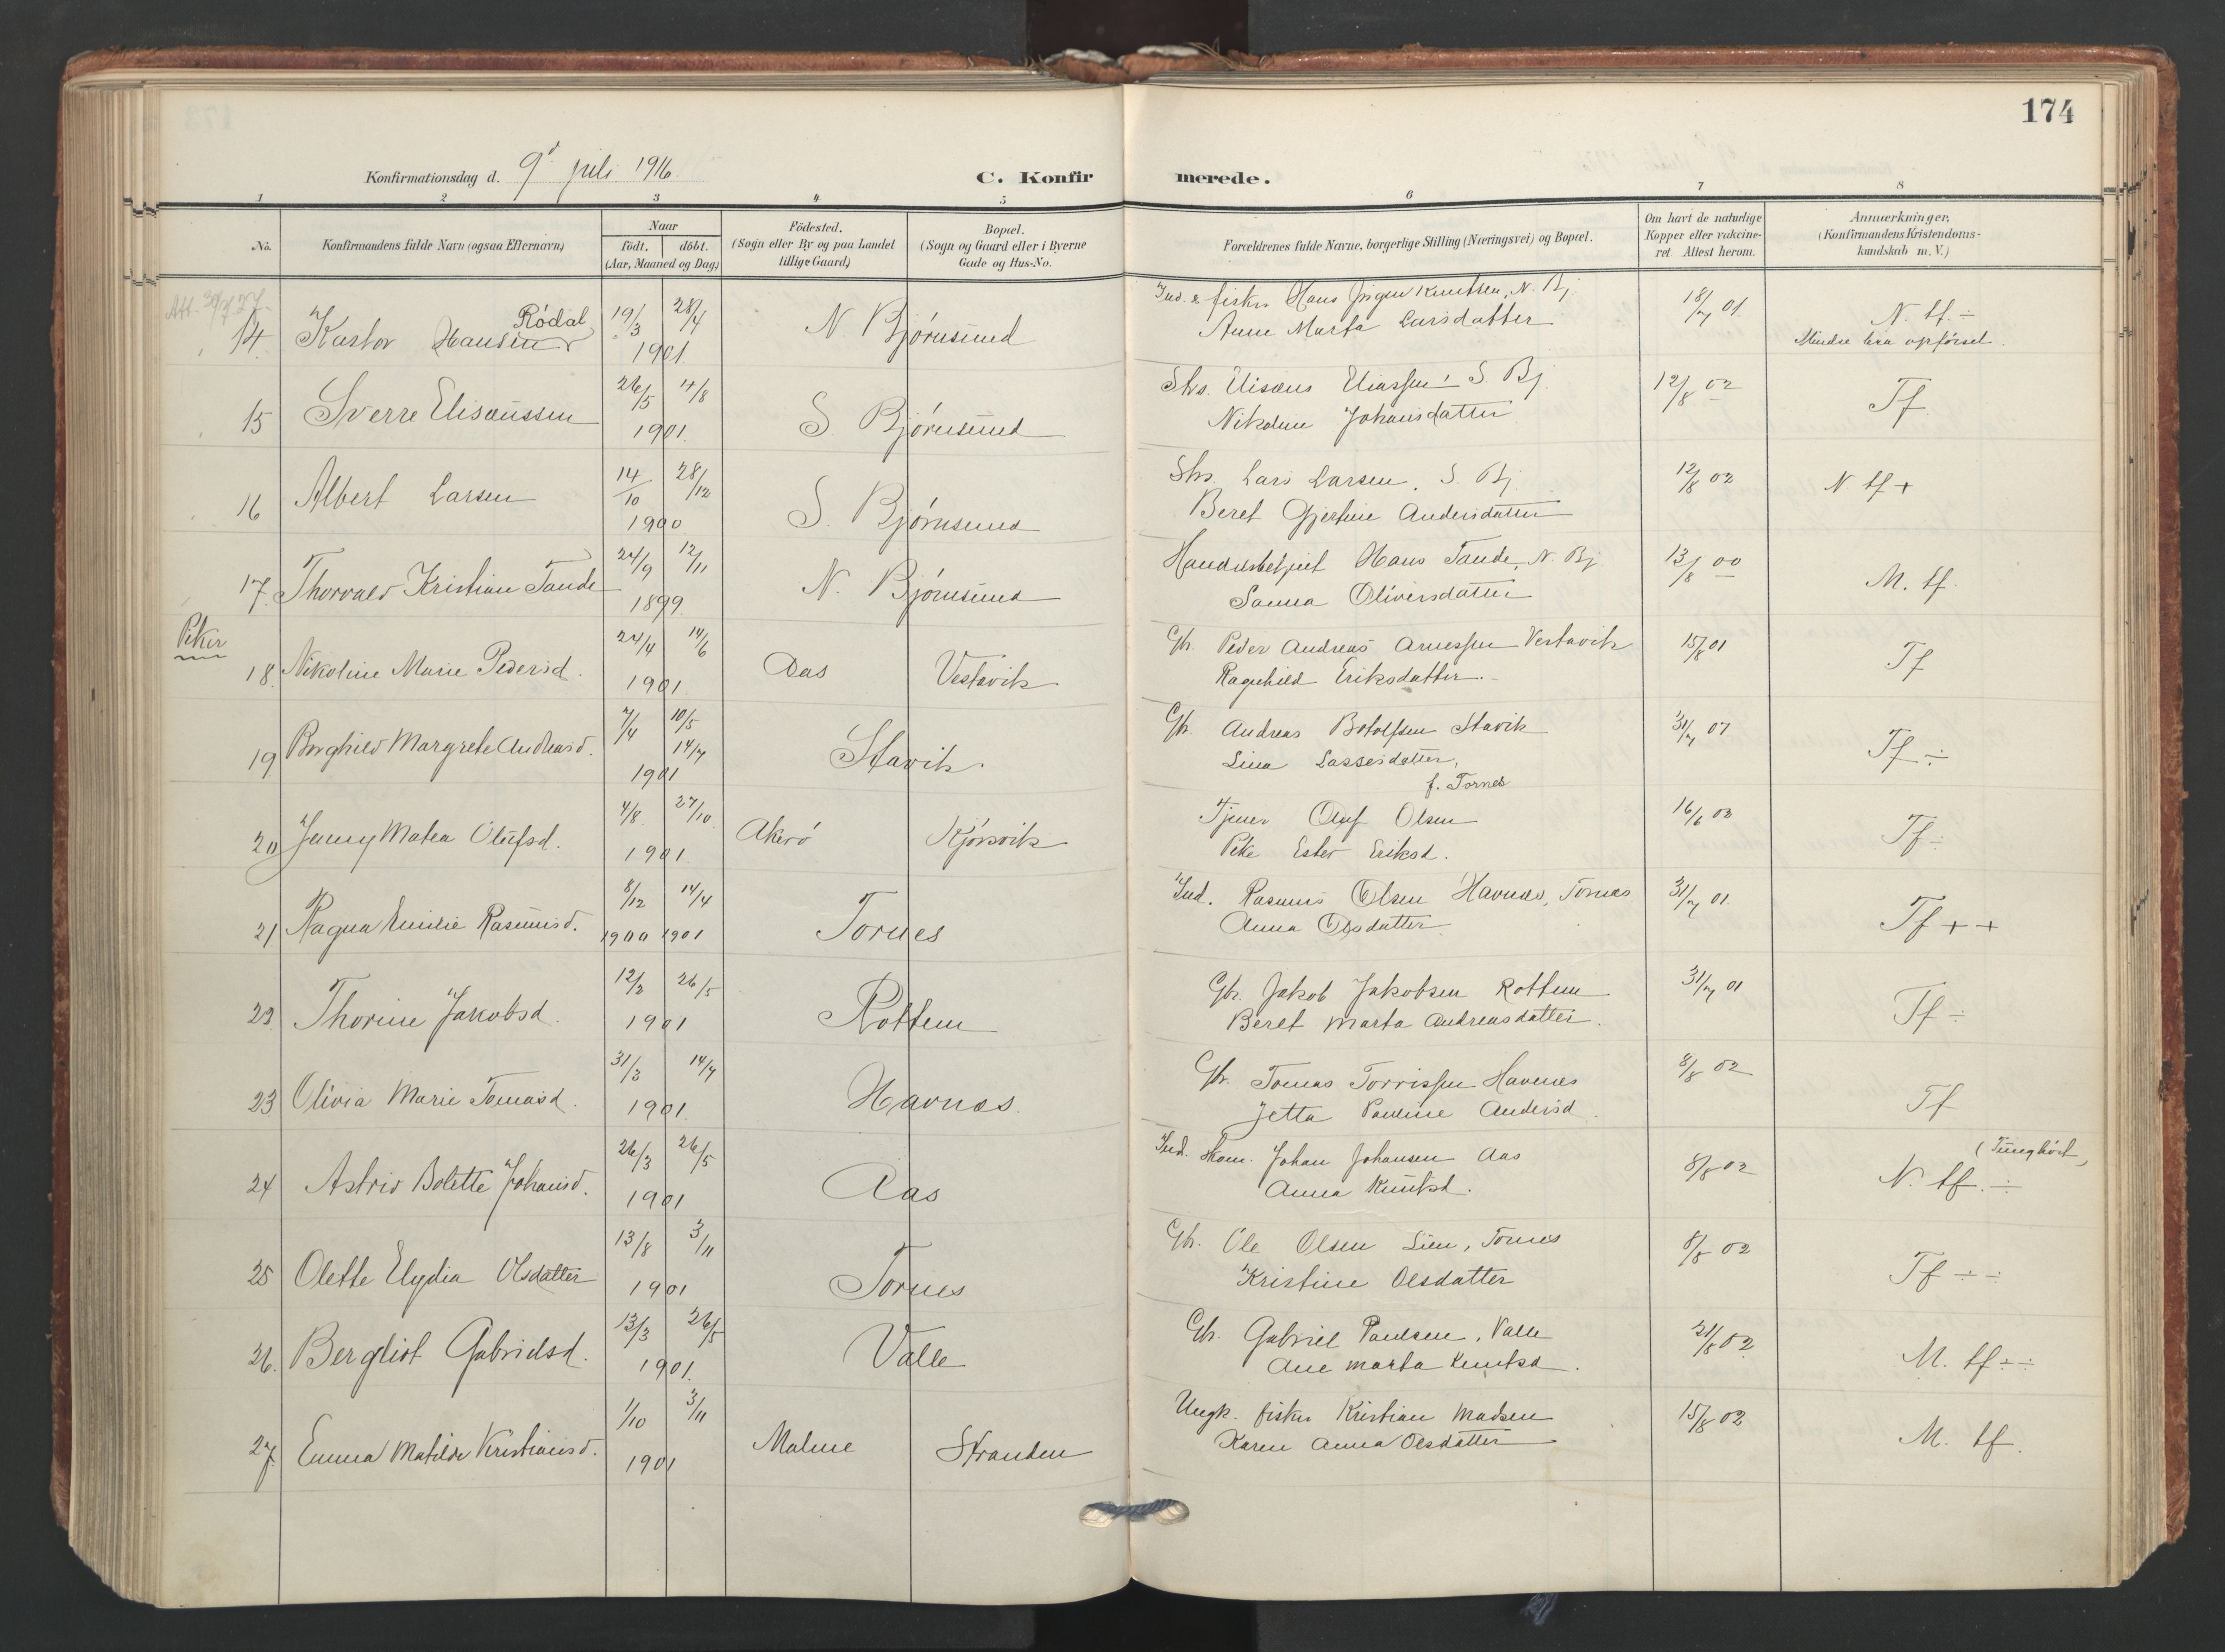 174
Konfirmationsdag d. 9d juli 1916.
C. Konfirmerede.
1 2 3 4 5 6 7 8
No.
Konfirmandens fulde Navn (ogsaa Efternavn)
Naar
födt. döbt.
(Aar, Maaned og Dag)
Födested.
(Sogn eller By og paa Landet
tillige Gaard)
Bopæl.
(Sogn og Gaard eller i Byerne
Gade og Hus-No.
Forældrenes fulde Navne, borgerlige Stilling (Næringsvei) og Bopæl.
Om havt de naturlige
Kopper eller vakcine-
ret. Attest herom.
Anmærkninger,
(Konfirmandens Kristendoms-
kundskab m. V.)
Rödal
14. Kastor Hansen 19/3 28/4 1901 N. Bjørnsund
Ind. & fisker Hans Jørgen Knutsen, N. Bj.
Anne Marta Larsdatter
18/7 01.
N. tf. ÷
Mindre bra opførsel.
15 Sverre Elisæussen 26/5 4/8 1901. S. Bjørnsund
Shs. Elisæus Eliassen S. Bj.
Nikoline Johansdatter
12/8 02
Tf
16 Albert Larsen 14/10 28/12 1900 S. Bjørnsund
Shs. Lars Larsen, S. Bj.
Beret Gjertine Andersdatter
12/8 02
N tf +
17. Thorvald Kristian Tande 24/9 12/11 1899. N. Bjørnsund
Handelsbetjent Hans Tande, N. Bj
Sanna Oliversdatter
13/8 00
M. tf.
Piker
18. Nikoline Marie Pedersd. 24/4 14/6 1901 Aas Vestavik
Gbr. Peder Andreas Arnessen Vestavik
Ragnhild Eriksdatter.
15/8 01
Tf
19 Borghild Margrete Andreasd. 7/4 10/5 14/7 1901 Stavik
Gbr. Andreas Botolfsen Stavik
Lina Lassesdatter,
f. Tornes
31/7 07
Tf ÷
20 Jenny Matea Olufsd. 4/8 27/10 1901. Akerö Kjørsvik
Tjener Oluf Olsen
Pike Ester Eriksd.
16/6 03
Tf ÷
21 Ragna Emilie Rasmusd. 8/12 14/4 1900 1901 Tornes
Ind. Rasmus Olsen Havnæs, Tornes
Anna Olsdatter
31/7 01.
Tf + +
22 Thorine Jakobsd. 12/2 26/5 1901 Rottem
Gbr. Jakob Jakobsen Rottem
Beret Marta Andreasdatter.
31/7 01
Tf ÷
23 Olivia Marie Tomasd. 31/3 14/7 1901. Havnæs.
Gbr. Tomas Torrissen Havnes
Jetta Pauline Andersd.
8/8 02
Tf
24 Astrid Bolette Johansd. 26/3 26/5 1901 Aas
Ind. Skom. Johan Johansen Aas
Anna Knutsd.
8/8 02
(Tunghört)
N. tf. ÷
25 Olette Elydia Olsdatter 13/8 3/11 1901 Tornes
Gbr. Ole Olsen Lien, Tornes
Kristine Olsdatter
8/8 02
Tf ÷ ÷
26. Bergliot Gabrielsd. 13/3 26/5 1901. Valle
Gbr. Gabriel Paulsen, Valle
Ane Marta Knutsd.
21/8 02
M. tf ÷ ÷
27. Emma Matilde Kristiansd. 1/10 3/11 1901 Malme Stranden
Ungk. fisker Kristian Madsen
Karen Anna Olsdatter
15/8 02
M. tf.